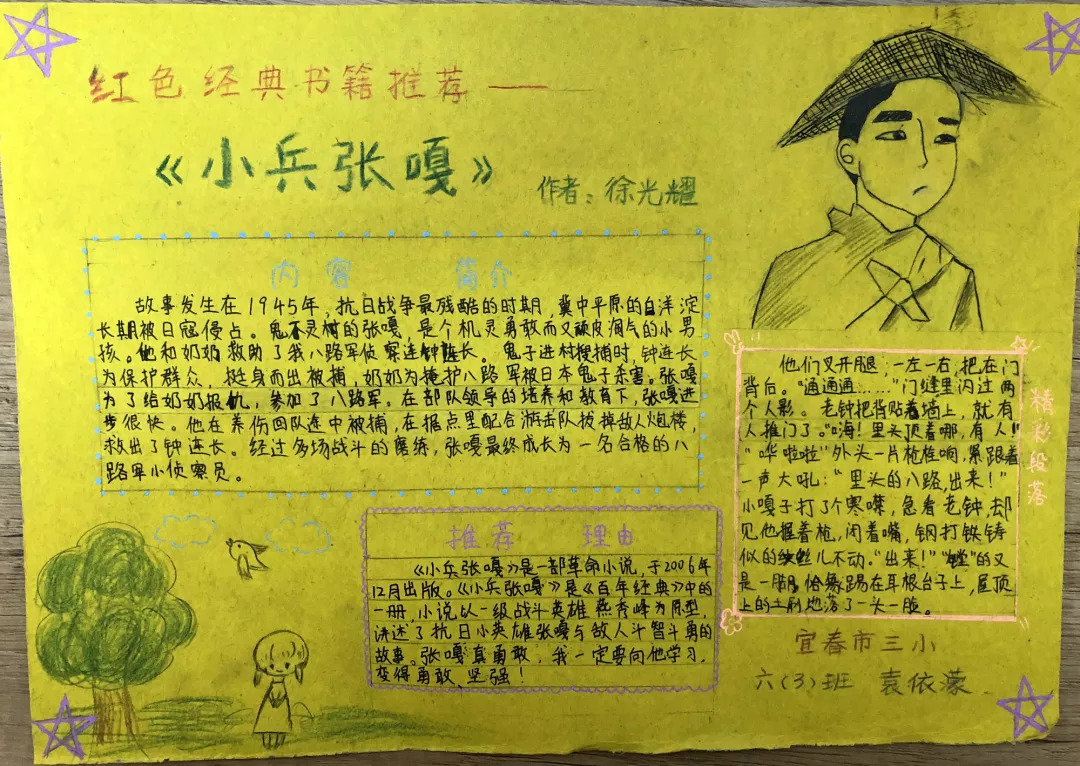 红色经典书籍推荐——
《小兵张嘎》
作者：徐光耀
内容 简介
故事发生在1945年，抗日战争最残酷的时期，冀中平原的白洋淀
长期被日寇侵占。鬼不灵村的张嘎，是个机灵勇敢而又顽皮淘气的小男
孩。他和奶奶救助了我八路军侦察连钟连长。鬼子进村搜捕时，钟连长
为保护群众，挺身而出被捕，奶奶为掩护八路军被日本鬼子杀害。张嘎
为了给奶奶报仇，参加了八路军。在部队领导的培养和教育下，张嘎进
步很快。他在养伤回队途中被捕，在据点里配合游击队拔掉敌人炮楼，
救出了钟连长。经过多场战斗的磨练，张嘎最终成长为一名合格的八
路军小侦察员。
推荐 理由
《小兵张嘎》是一部革命小说，于2006年
12月出版。《小兵张嘎》是《百年经典》中的
一册，小说以一级战斗英雄燕秀峰为原型，
讲述了抗日小英雄张嘎与敌人斗智斗勇的
故事。张嘎真勇敢，我一定要向他学习，
变得勇敢、坚强！
精彩段落
他们叉开腿，一左一右，把在门
背后。“通通通……”门缝里闪过两
个人影。老钟把背贴着墙上，就有
人推门了。“嗨！里头顶着哪，有人！”
“哗啦啦”外头一片枪栓响，紧跟着
一声大吼：“里头的八路，出来！”
小嘎子打了个寒噤，急看老钟，却
见他握着枪，闭着嘴，钢打铁铸
似的纹丝儿不动。“出来！”“嘡”的又
是一脚，恰象踢在耳根台子上，屋顶
上的土刷地落了一头一脸。
宜春市三小
六（3）班 袁依濛